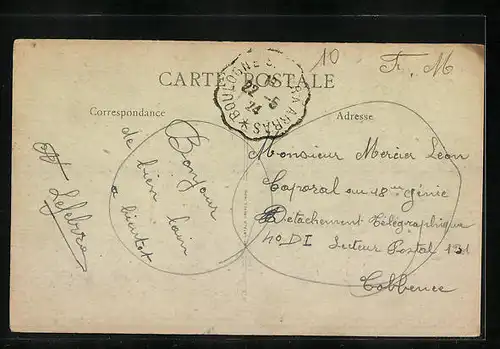 10
Fr. M
CARTE POSTALE
BOULOGNE S. M. À ARRAS
22 -5
24
Correspondance
Adresse
Bonjour
de bien loin
a bientot
A Lefebvre
Monsieur Mercier Léon
Caporal au 18me génie
Détachement Télégraphique
40 DI Secteur Postal 121
Cobbence